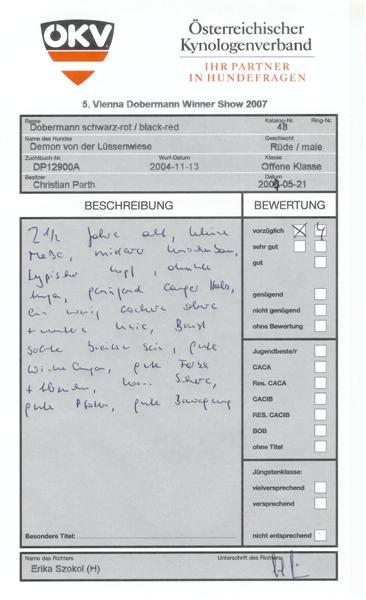 ÖKV
Österreichischer
Kynologenverband
IHR PARTNER
IN HUNDEFRAGEN
5. Vienna Dobermann Winner Show 2007
Rasse
Dobermann schwarz-rot / black-red
Katalog-Nr.
48
Ring-Nr.
Name des Hundes
Demon von der Lüssenwiese
Geschlecht
Rüde / male
Zuchtbuch-Nr.
DP12900A
Wurf-Datum
2004-11-13
Klasse
Offene Klasse
Besitzer
Christian Parth
Datum
-05-21
BESCHREIBUNG
BEWERTUNG
2 1/2 Jahre alt,
Kopf, dunkle
Hals,
ein wenig obere
+ untere Linie, Brust
sollte breiter sein, gute
Winkelungen, gute Farbe
gute Pfoten, gute Bewegung
vorzüglich
sehr gut
gut
genügend
nicht genügend
ohne Bewertung
Jugendbeste/r
CACA
Res. CACA
CACIB
RES. CACIB
BOB
ohne Titel
Jüngstenklasse:
vielversprechend
versprechend
nicht entsprechend
Besondere Titel:
Name des Richters
Erika Szokol (H)
Unterschrift des Richters